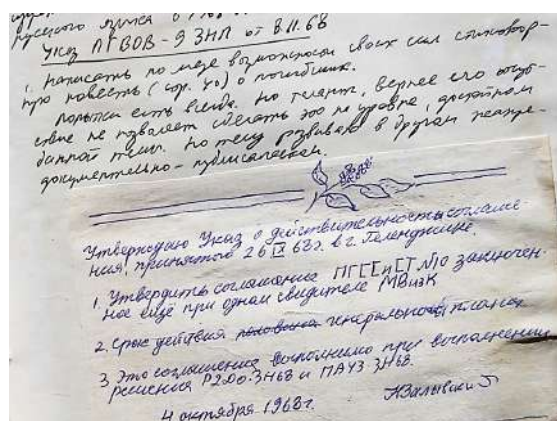 русского языка о
Указ ПГВОВ-9 ЗНП от 8.11.68
1. Написать по мере возможности своих сил стихотвор-
ную повесть (стр. 40) о погибших.
Попытки есть всегда. Но талант, вернее его отсут-
ствие не позволяет сделать это на уровне, достойном
данной темы. Но тему развиваю в другом жанре -
документально-публицистическом.
Утверждаю Указ о действительности соглаше-
ния, принятого 26 IX 68г. в г. Геленджике.
1. Утвердить соглашение №10 заключен-
ное ещё при одном свидетеле МВизК
2. Срок действия половина генеральной планах
3. Это соглашение выполнимо при выполнении
решения Р200-ЗН68 и ПАУЗ ЗН68.
4 октября 1968г.